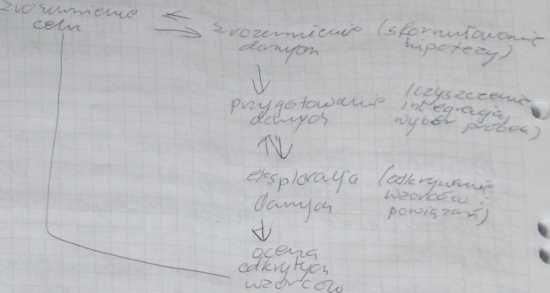 zrozumienie
celu
zrozumienie (sformułowanie
danych hipotezy)
przygotowanie (czyszczenie
danych integracja
wybór próbek)
eksploracja (odkrywanie
danych wzorców i
powiązań)
ocena
odkrytych
wzorców